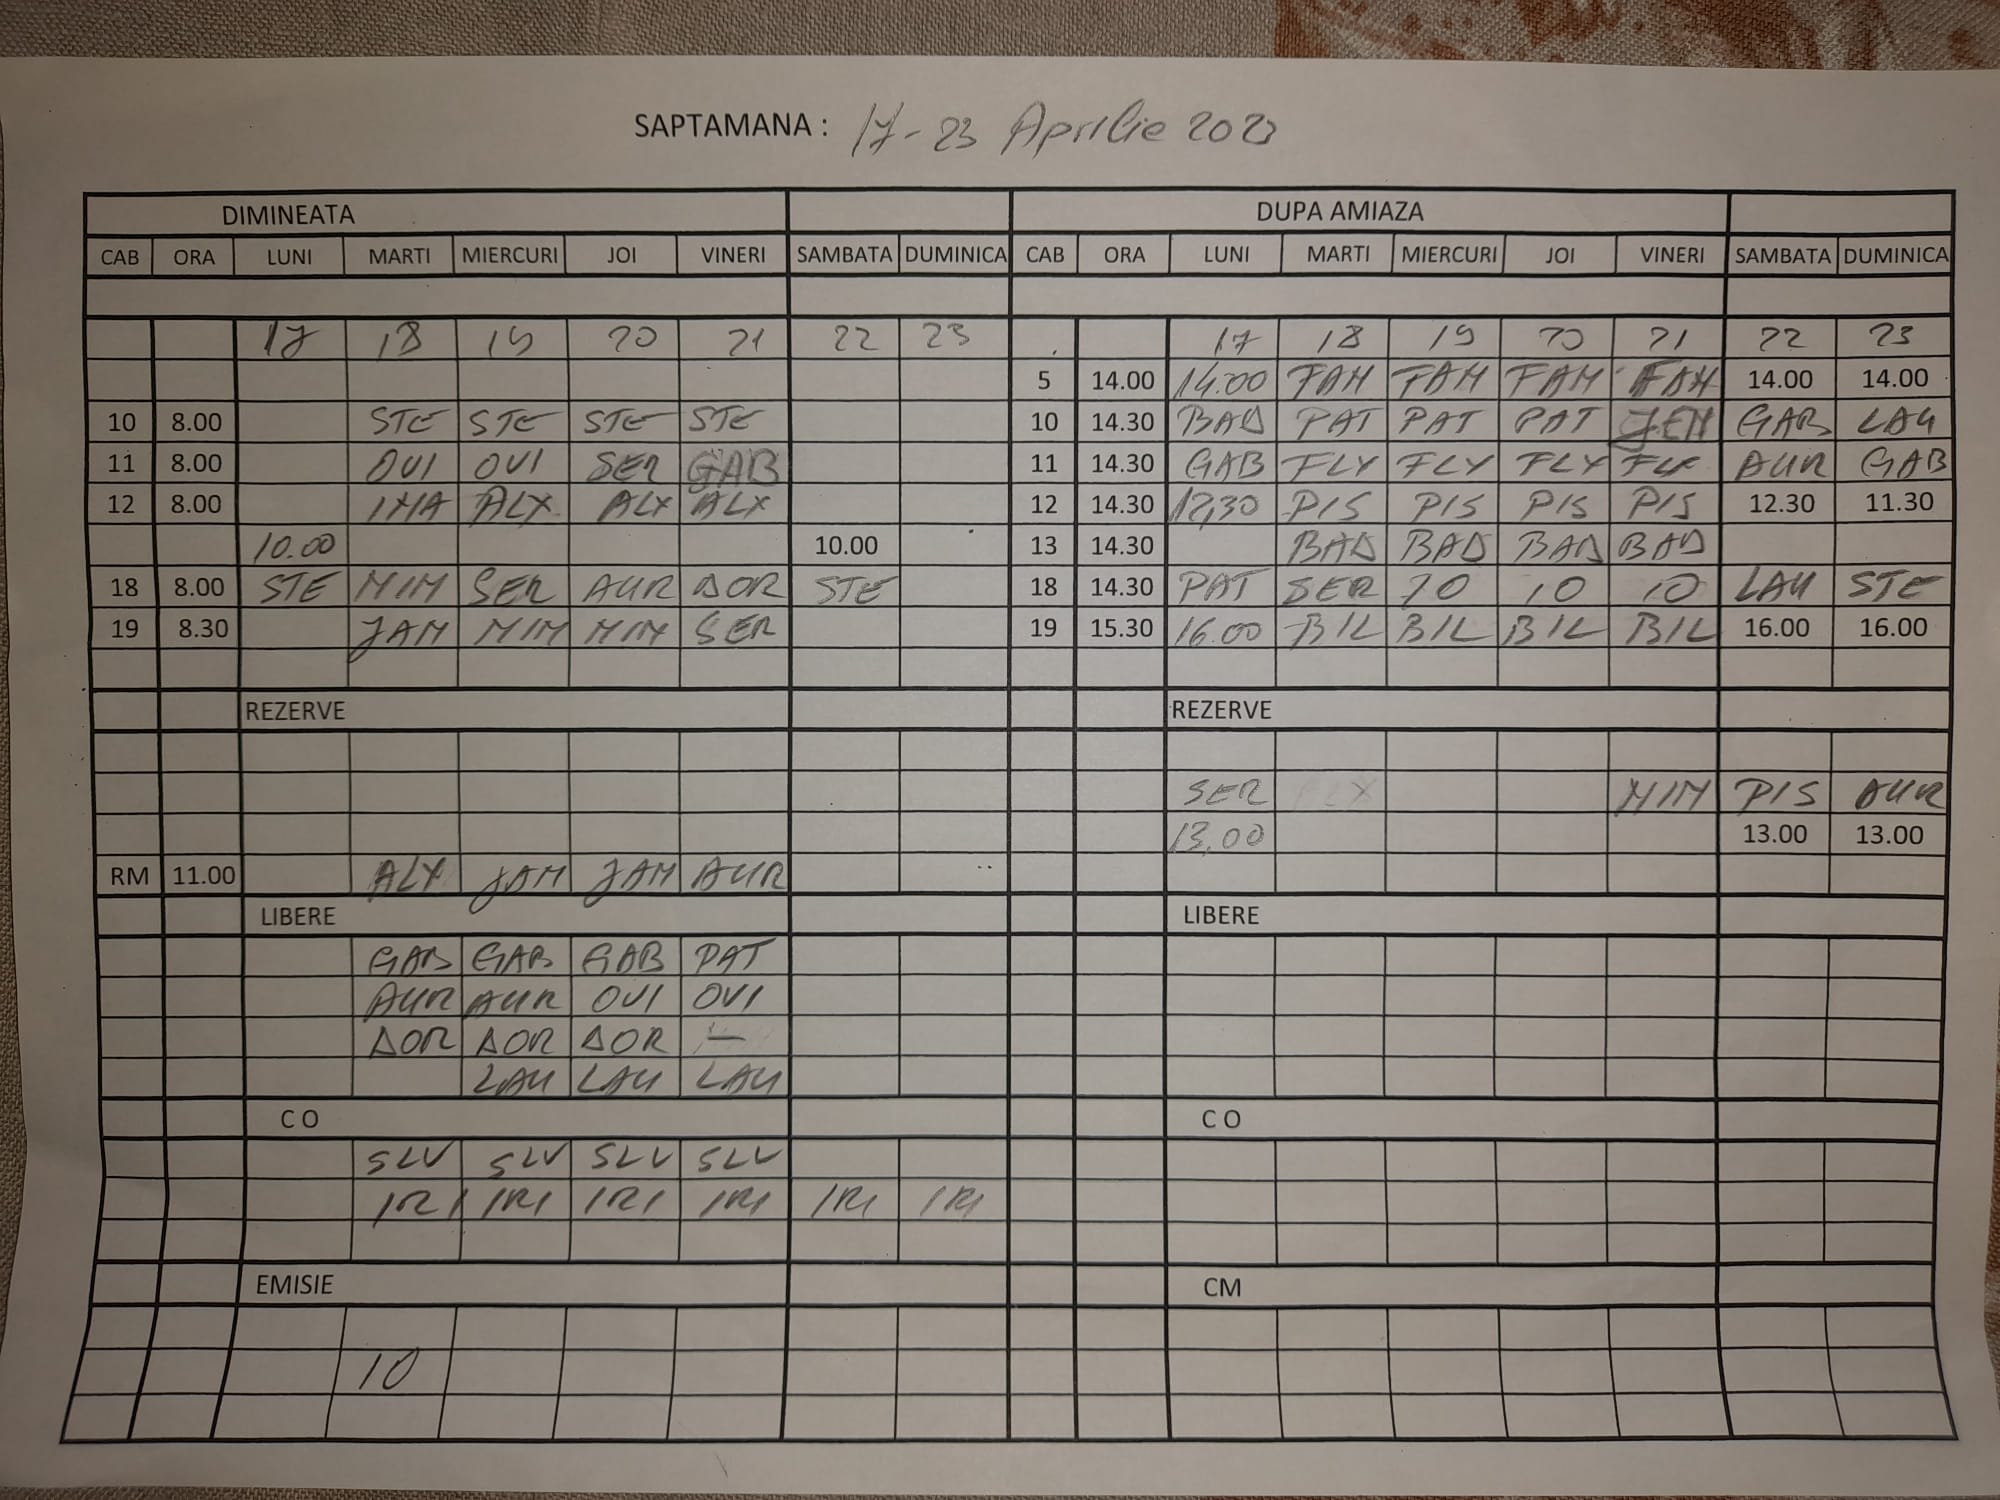 SAPTAMANA : 17-23 Aprilie 2023
DIMINEATA DUPA AMIAZA
CAB ORA LUNI MARTI MIERCURI JOI VINERI SAMBATA DUMINICA CAB ORA LUNI MARTI MIERCURI JOI VINERI SAMBATA DUMINICA
17 18 19 20 21 22 23 17 18 19 20 21 22 23
5 14.00 14.00 FAM FAM FAM FAM 14.00 14.00
10 8.00 STE STE STE STE 10 14.30 BAD PAT PAT PAT JEN GAB LAU
11 8.00 OVI OVI SER GAB 11 14.30 GAB FLY FLY FLY FLY AUR GAB
12 8.00 ALX ALX ALX 12 14.30 12,30 PIS PIS PIS PIS 12.30 11.30
10.00 10.00 13 14.30 BAD BAD BAD BAD
18 8.00 STE MIM SER AUR DOR STE 18 14.30 PAT SER 10 10 10 LAU STE
19 8.30 JAM MIM MIM SER 19 15.30 16.00 BIL BIL BIL BIL 16.00 16.00
REZERVE REZERVE
SER MIM PIS AUR
13.00 13.00 13.00
RM 11.00 ALX JAM JAM AUR
LIBERE LIBERE
GAB GAB GAB PAT
AUR AUR OVI OVI
DOR DOR DOR —
LAU LAU LAU
C O C O
SLV SLV SLV SLV
IRI IRI IRI IRI IRI IRI
EMISIE CM
10